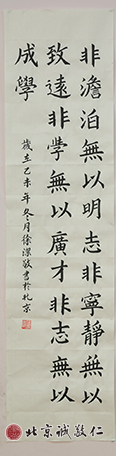 非澹泊無以明志非寧靜無以
致遠非學無以廣才非志無以
成學
歲在乙未年冬月徐潔敬書於北京
北京誠敬仁